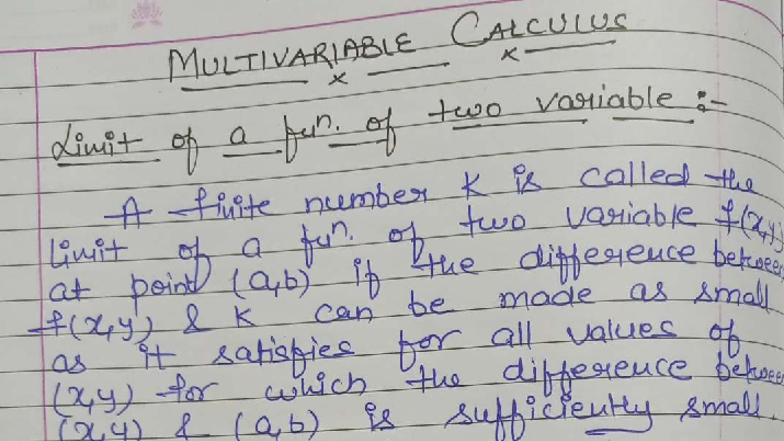 MULTIVARIABLE CALCULUS
Limit of a fun. of two variable :-
A finite number K is called the
limit of a fun. of two variable f(x,y)
at point (a,b) if the difference between
f(x,y) & K can be made as small
as it satisfies for all values of
(x,y) for which the difference between
(x,y) & (a,b) is sufficiently small.